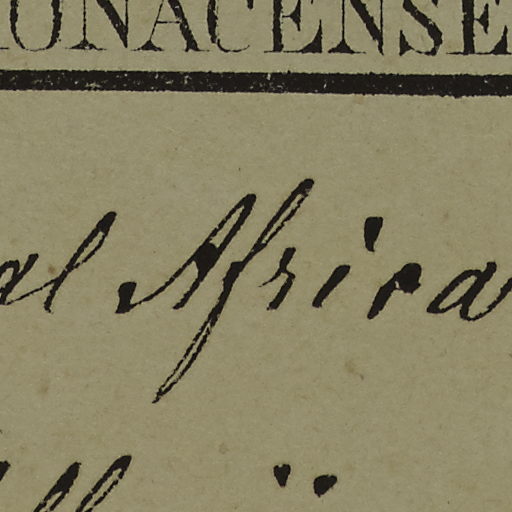 IONACENSE
al Africa